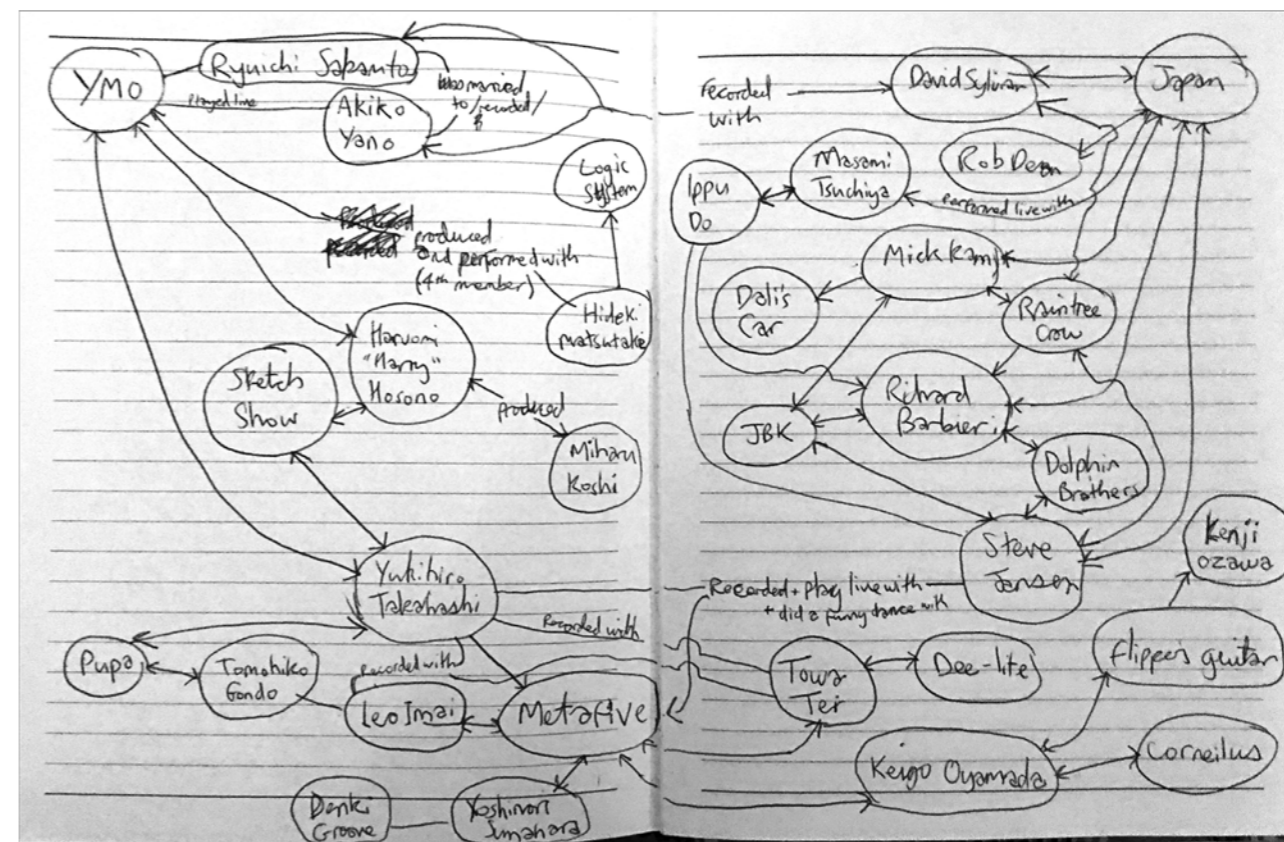 YMO
Ryuichi Sakamoto
played live
Akiko
Yano
was married
to/recorded/
Logic
System
produced
and performed with
(4th member)
Hideki
Matsutake
Haruomi
"Harry"
Hosono
Sketch
Show
produced
Miharu
Koshi
Yukihiro
Takahashi
Recorded with
Pupa
Tomohiko
Gondo
Recorded with
Leo Imai
Metafive
Denki
Groove
Yoshinori
Sunahara
recorded
with
David Sylvian
Japan
Rob Dean
Ippu
Do
Masami
Tsuchiya
Performed live with
Mick Karn
Dali's
Car
Raintree
Crow
Richard
Barbieri
JBK
Dolphin
Brothers
Steve
Jansen
Kenji
Ozawa
Recorded + play live with
+ did a funny dance with
Towa
Tei
Dee-lite
flipper's guitar
Keigo Oyamada
Corneilus